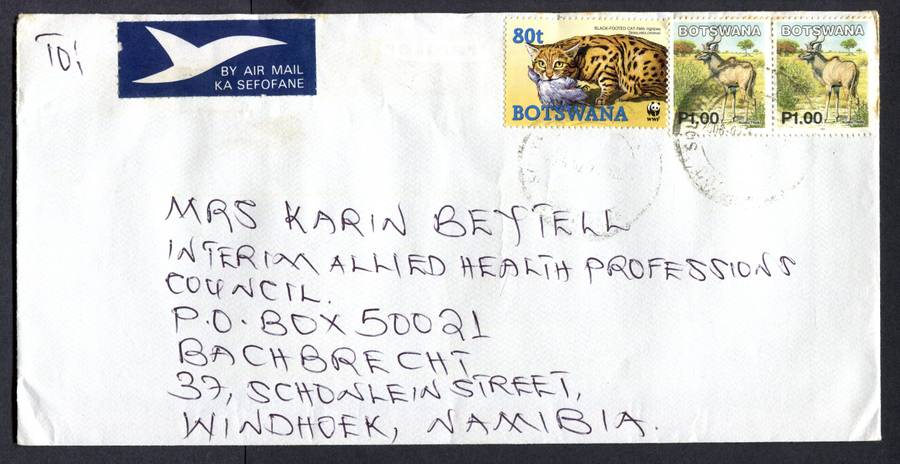 TO:
BY AIR MAIL
KA SEFOFANE
80t
BLACK-FOOTED CAT
BOTSWANA
WWF
BOTSWANA
P1.00
BOTSWANA
P1.00
MRS KARIN BEYTELL
INTERIM ALLIED HEALTH PROFESSIONS
COUNCIL.
P.O. BOX 50021
BACHBRECHT
37, SCHONLEIN STREET,
WINDHOEK, NAMIBIA.